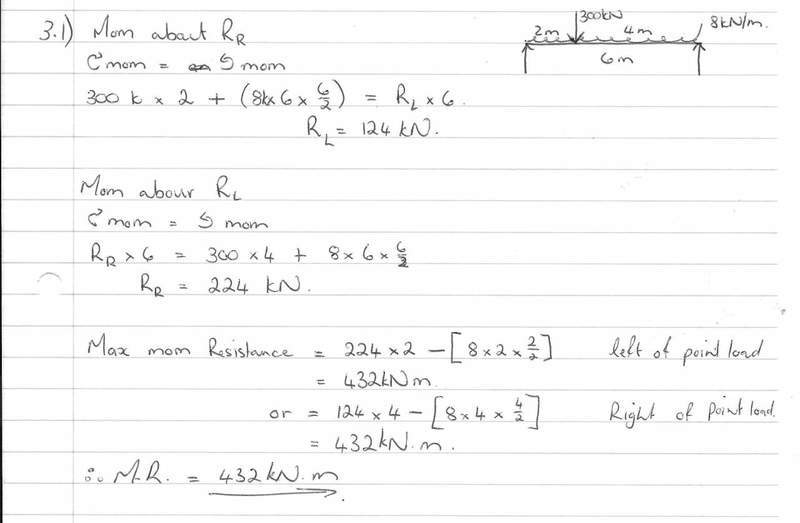 3.1) Mom about R_R
↻ mom = ↺ mom
300 k × 2 + (8k × 6 × 6/2) = R_L × 6.
R_L = 124 kN.
300kN
2m 4m 8kN/m.
6m
Mom abour R_L
↻ mom = ↺ mom
R_R × 6 = 300 × 4 + 8 × 6 × 6/2
R_R = 224 kN.
Max mom Resistance = 224 × 2 − [8 × 2 × 2/2] left of point load
= 432kNm.
or = 124 × 4 − [8 × 4 × 4/2] Right of Point load.
= 432kN.m.
∴ M.R. = 432kN.m.